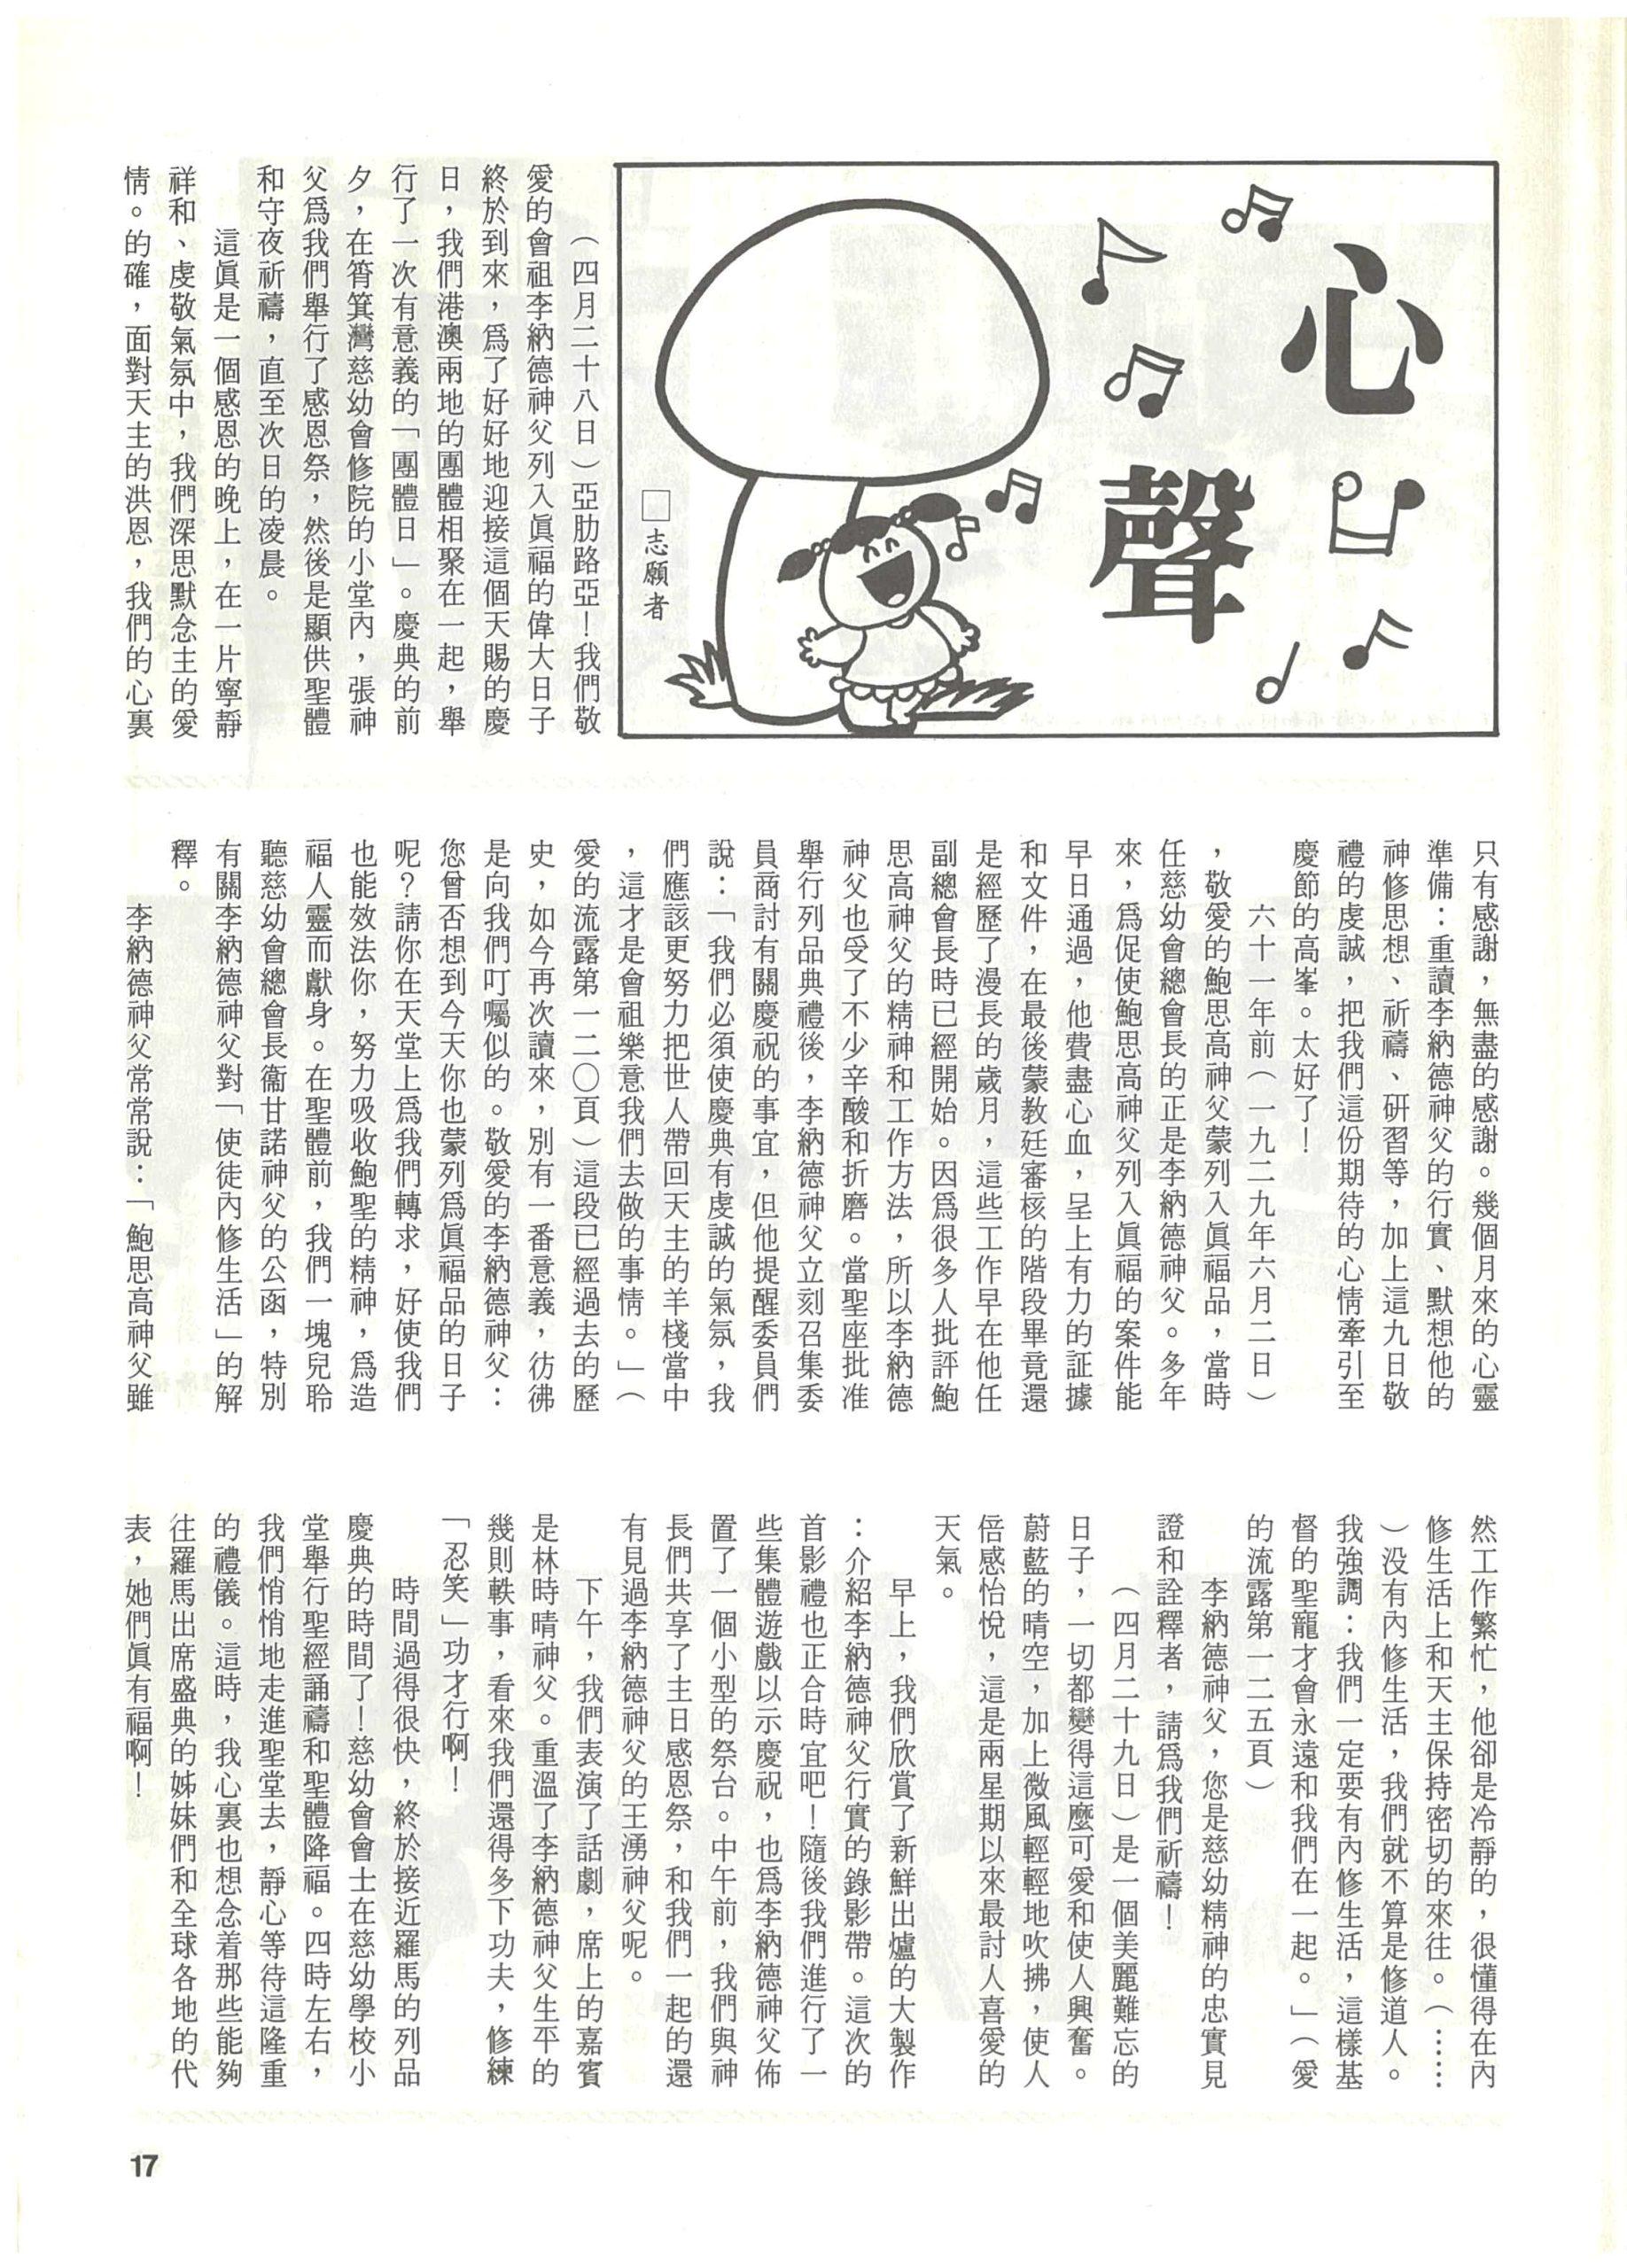 心聲
□志願者
（四月二十八日）亞肋路亞！我們敬
愛的會祖李納德神父列入眞福的偉大日子
終於到來，爲了好好地迎接這個天賜的慶
日，我們港澳兩地的團體相聚在一起，舉
行了一次有意義的「團體日」。慶典的前
夕，在筲箕灣慈幼會修院的小堂內，張神
父爲我們舉行了感恩祭，然後是顯供聖體
和守夜祈禱，直至次日的凌晨。
這眞是一個感恩的晚上，在一片寧靜
祥和、虔敬氣氛中，我們深思默念主的愛
情。的確，面對天主的洪恩，我們的心裏
只有感謝，無盡的感謝。幾個月來的心靈
準備：重讀李納德神父的行實、默想他的
神修思想、祈禱、研習等，加上這九日敬
禮的虔誠，把我們這份期待的心情牽引至
慶節的高峯。太好了！
六十一年前（一九二九年六月二日）
，敬愛的鮑思高神父蒙列入眞福品，當時
任慈幼會總會長的正是李納德神父。多年
來，爲促使鮑思高神父列入眞福的案件能
早日通過，他費盡心血，呈上有力的証據
和文件，在最後蒙教廷審核的階段畢竟還
是經歷了漫長的歲月，這些工作早在他任
副總會長時已經開始。因爲很多人批評鮑
思高神父的精神和工作方法，所以李納德
神父也受了不少辛酸和折磨。當聖座批准
舉行列品典禮後，李納德神父立刻召集委
員商討有關慶祝的事宜，但他提醒委員們
說：「我們必須使慶典有虔誠的氣氛，我
們應該更努力把世人帶回天主的羊棧當中
，這才是會祖樂意我們去做的事情。」（
愛的流露第一二〇頁）這段已經過去的歷
史，如今再次讀來，別有一番意義，彷彿
是向我們叮囑似的。敬愛的李納德神父：
您曾否想到今天你也蒙列爲眞福品的日子
呢？請你在天堂上爲我們轉求，好使我們
也能效法你，努力吸收鮑聖的精神，爲造
福人靈而獻身。在聖體前，我們一塊兒聆
聽慈幼會總會長衞甘諾神父的公函，特別
有關李納德神父對「使徒內修生活」的解
釋。
李納德神父常常說：「鮑思高神父雖
然工作繁忙，他卻是冷靜的，很懂得在內
修生活上和天主保持密切的來往。（……
）沒有內修生活，我們就不算是修道人。
我強調：我們一定要有內修生活，這樣基
督的聖寵才會永遠和我們在一起。」（愛
的流露第一二五頁）
李納德神父，您是慈幼精神的忠實見
證和詮釋者，請爲我們祈禱！
（四月二十九日）是一個美麗難忘的
日子，一切都變得這麼可愛和使人興奮。
蔚藍的晴空，加上微風輕輕地吹拂，使人
倍感怡悅，這是兩星期以來最討人喜愛的
天氣。
早上，我們欣賞了新鮮出爐的大製作
：介紹李納德神父行實的錄影帶。這次的
首影禮也正合時宜吧！隨後我們進行了一
些集體遊戲以示慶祝，也爲李納德神父佈
置了一個小型的祭台。中午前，我們與神
長們共享了主日感恩祭，和我們一起的還
有見過李納德神父的王湧神父呢。
下午，我們表演了話劇，席上的嘉賓
是林時晴神父。重溫了李納德神父生平的
幾則軼事，看來我們還得多下功夫，修練
「忍笑」功才行啊！
時間過得很快，終於接近羅馬的列品
慶典的時間了！慈幼會會士在慈幼學校小
堂舉行聖經誦禱和聖體降福。四時左右，
我們悄悄地走進聖堂去，靜心等待這隆重
的禮儀。這時，我心裏也想念着那些能夠
往羅馬出席盛典的姊妹們和全球各地的代
表，她們眞有福啊！
17